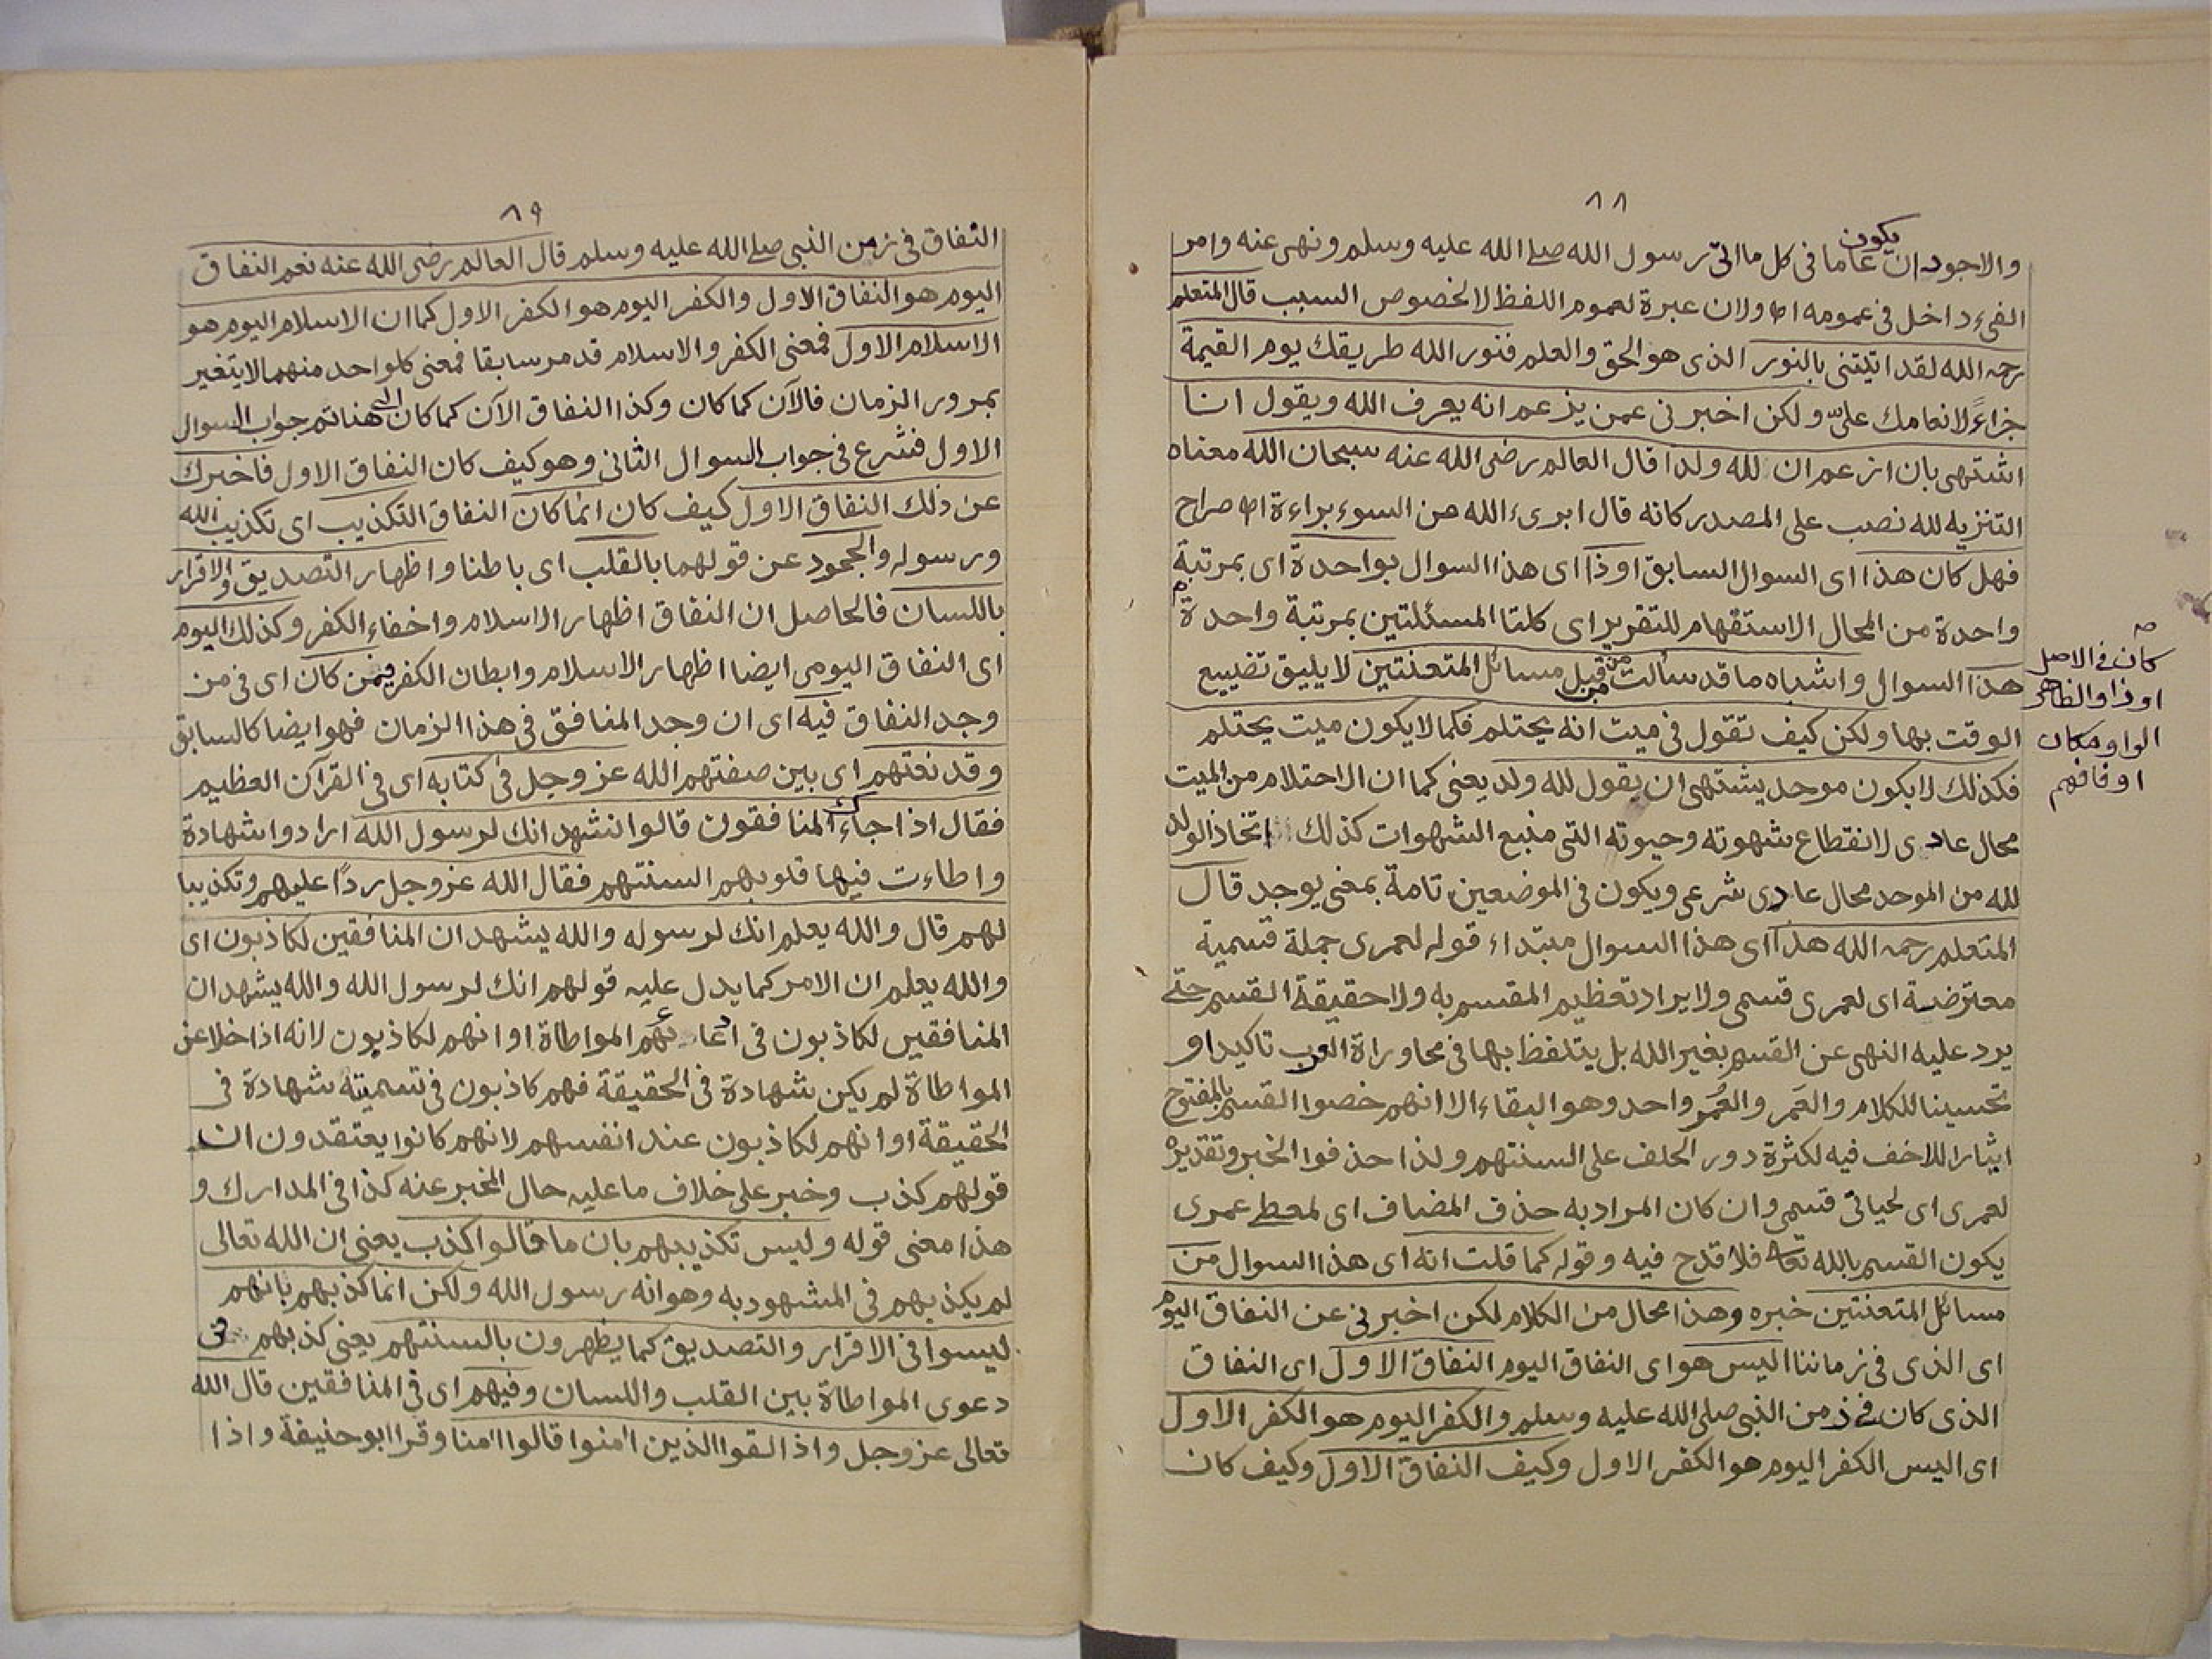 ٨٨
والاجود ان يكون عاما فى كل ما اتى رسول الله صلے الله عليه وسلم ونهى عنه وامر
الفىء داخل فى عمومه اھ ولان عبرة لعموم اللفظ لا لخصوص السبب قال المتعلم
رحمه الله لقد اتيتنى بالنور الذى هو الحق والعلم فنور الله طريقك يوم القيمة
جزاءً لانعامك علىّ ولكن اخبرنى عمن يزعم انه يعرف الله ويقول انا
اشتهى بان ازعم ان لله ولدا قال العالم رضى الله عنه سبحان الله معناه
التنزيه لله نصب على المصدر كانه قال ابرىء الله من السوء براءة اھ صراح
فهل كان هذا اى السوال السابق اوذا اى هذا السوال بواحدة اى بمرتبة
واحدة من المحال الاستفهام للتقرير اى كلتا المسئلتين بمرتبة واحدة م
هذا السوال واشباه ما قد سألت من قبل من مسائل المتعنتين لا يليق تضييع
الوقت بها ولكن كيف تقول فى ميت انه يحتلم فكما لا يكون ميت يحتلم
فكذلك لا يكون موحد يشتهى ان يقول لله ولد يعنى كما ان الاحتلام من الميت
محال عادى لانقطاع شهوته وحيوته التى منبع الشهوات كذلك اتخاذ الولد
لله من الموحد محال عادى شرعى ويكون فى الموضعين تامة بمعنى يوجد قال
المتعلم رحمه الله هذا اى هذا السوال مبتداء قوله لعمرى جملة قسمية
معترضة اى لعمرى قسمى ولا يراد تعظيم المقسم به ولا حقيقة القسم حتے
يرد عليه النهى عن القسم بغير الله بل يتلفظ بها فى محاوراة العرب تاكيدا و
تحسينا للكلام والعَمر والعُمر واحد وهو البقاء الا انهم خصوا القسم بالمفتوح
ايثارا للاخف فيه لكثرة دور الحلف على السنتهم ولذا حذفوا الخبر وتقديره
لعمرى اى لحياتى قسمى وان كان المراد به حذف المضاف اى لمعطے عمرى
يكون القسم بالله تعالے فلا قدح فيه وقوله كما قلت انه اى هذا السوال من
مسائل المتعنتين خبره وهذا محال من الكلام لكن اخبرنى عن النفاق اليوم
اى الذى فى زماننا اليس هو اى النفاق اليوم النفاق الاول اى النفاق
الذى كان فى زمن النبى صلى الله عليه وسلم والكفر اليوم هو الكفر الاول
اى اليس الكفر اليوم هو الكفر الاول وكيف النفاق الاول وكيف كان
كان فى الاصل
اوذا والظاهر
الواو مكان
او فافهم
٨٩
النفاق فى زمن النبى صلے الله عليه وسلم قال العالم رضى الله عنه نعم النفاق
اليوم هو النفاق الاول والكفر اليوم هو الكفر الاول كما ان الاسلام اليوم هو
الاسلام الاول فمعنى الكفر والاسلام قد مر سابقا فمعنى كلواحد منهما لا يتغير
بمرور الزمان فالآن كما كان وكذا النفاق الآن كما كان الى هنا تم جواب السوال
الاول فشرع فى جواب السوال الثانى وهو كيف كان النفاق الاول فاخبرك
عن ذلك النفاق الاول كيف كان انما كان النفاق التكذيب اى تكذيب الله
ورسوله والجحود عن قولهما بالقلب اى باطنا واظهار التصديق والاقرار
باللسان فالحاصل ان النفاق اظهار الاسلام واخفاء الكفر وكذلك اليوم
اى النفاق اليومى ايضا اظهار الاسلام وابطان الكفر فيمن كان اى فى من
وجد النفاق فيه اى ان وجد المنافق فى هذا الزمان فهو ايضا كالسابق
وقد نعتهم اى بين صفتهم الله عز وجل فى كتابه اى فى القرآن العظيم
فقال اذا جاءك المنافقون قالوا نشهد انك لرسول الله ارادوا شهادة
واطاءت فيها قلوبهم السنتهم فقال الله عز وجل ردًا عليهم وتكذيبا
لهم قال والله يعلم انك لرسوله والله يشهد ان المنافقين لكاذبون اى
والله يعلم ان الامر كما يدل عليه قولهم انك لرسول الله والله يشهد ان
المنافقين لكاذبون فى ادعائهم المواطاة او انهم لكاذبون لانه اذا خلا عن
المواطاة لم يكن شهادة فى الحقيقة فهم كاذبون فى تسميته شهادة فى
الحقيقة او انهم لكاذبون عند انفسهم لانهم كانوا يعتقدون ان
قولهم كذب وخبر على خلاف ما عليه حال المخبر عنه كذا فى المدارك و
هذا معنى قوله وليس تكذيبهم بان ما قالوا كذب يعنى ان الله تعالى
لم يكذبهم فى المشهود به وهو انه رسول الله ولكن انما كذبهم بانهم
ليسوا فى الاقرار والتصديق كما يظهرون بالسنتهم يعنى كذبهم فى
دعوى المواطاة بين القلب واللسان وفيهم اى فى المنافقين قال الله
تعالى عز وجل واذا لقوا الذين امنوا قالوا امنا وقرا ابو حنيفة واذا